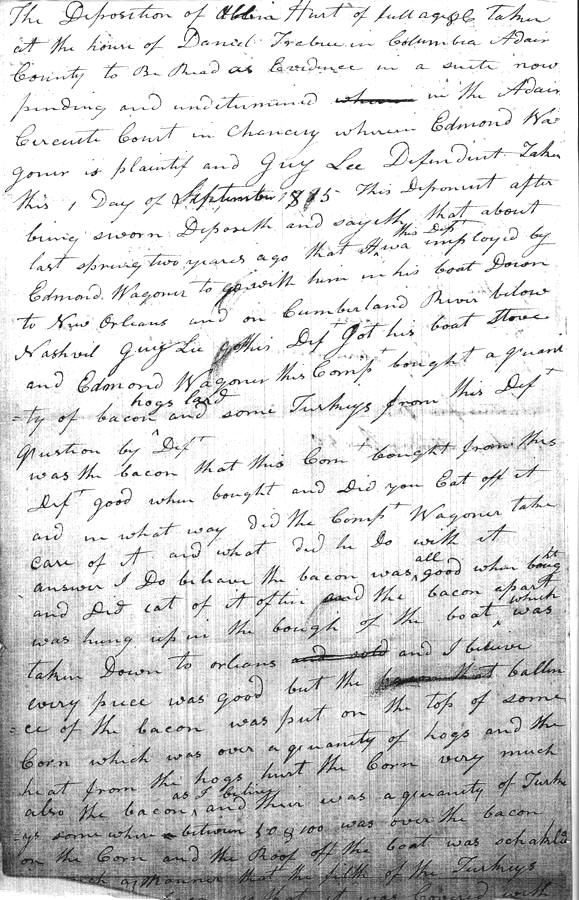 The Deposition of Hurt of full age &c taken
at the house of Daniel Trabue in Columbia Adair
County to Be Read as Evidence in a suite now
pending and undetermined in the Adair
Circuite Court in Chancery wherein Edmond Wa
goner is plaintif and Guy Lee Defendent Taken
this 1 Day of September 1815 This Deponent after
being sworn Deposeth and sayeth that about
last spring two yeares ago that this Dept was imployed by
Edmond Wagoner to go with him in his boat Down
to New Orleans and on Cumberland River below
Nashvil Guy Lee this Deft Got his boat stove
and Edmond Wagoner this Compt bought a quan
=ty of bacon hogs lard and some Turkeys from this Deft
Question by Deft
was the bacon that this Comt bought from this
Deft good when bought and Did you Eat off it
and in what way did the Compt Wagoner take
care of it and what did he Do with it
answer I Do beleave the bacon was all good when bought
and Did eat of it often and the bacon apart
was hung up in the bough of the boat which was
taken Down to orleans and sold and I believe
every piece was good but the ballen
=ce of the bacon was put on the top of some
Corn which was over a quanity of hogs and the
heat from the hogs hurt the Corn very much
also the bacon as I believe and their was a quanity of Turke
=ys some where between 50 & 100 was over the bacon
on the Corn and the Roof off the boat was
such a manner that the filth of the Turkeys
that it was Covered with